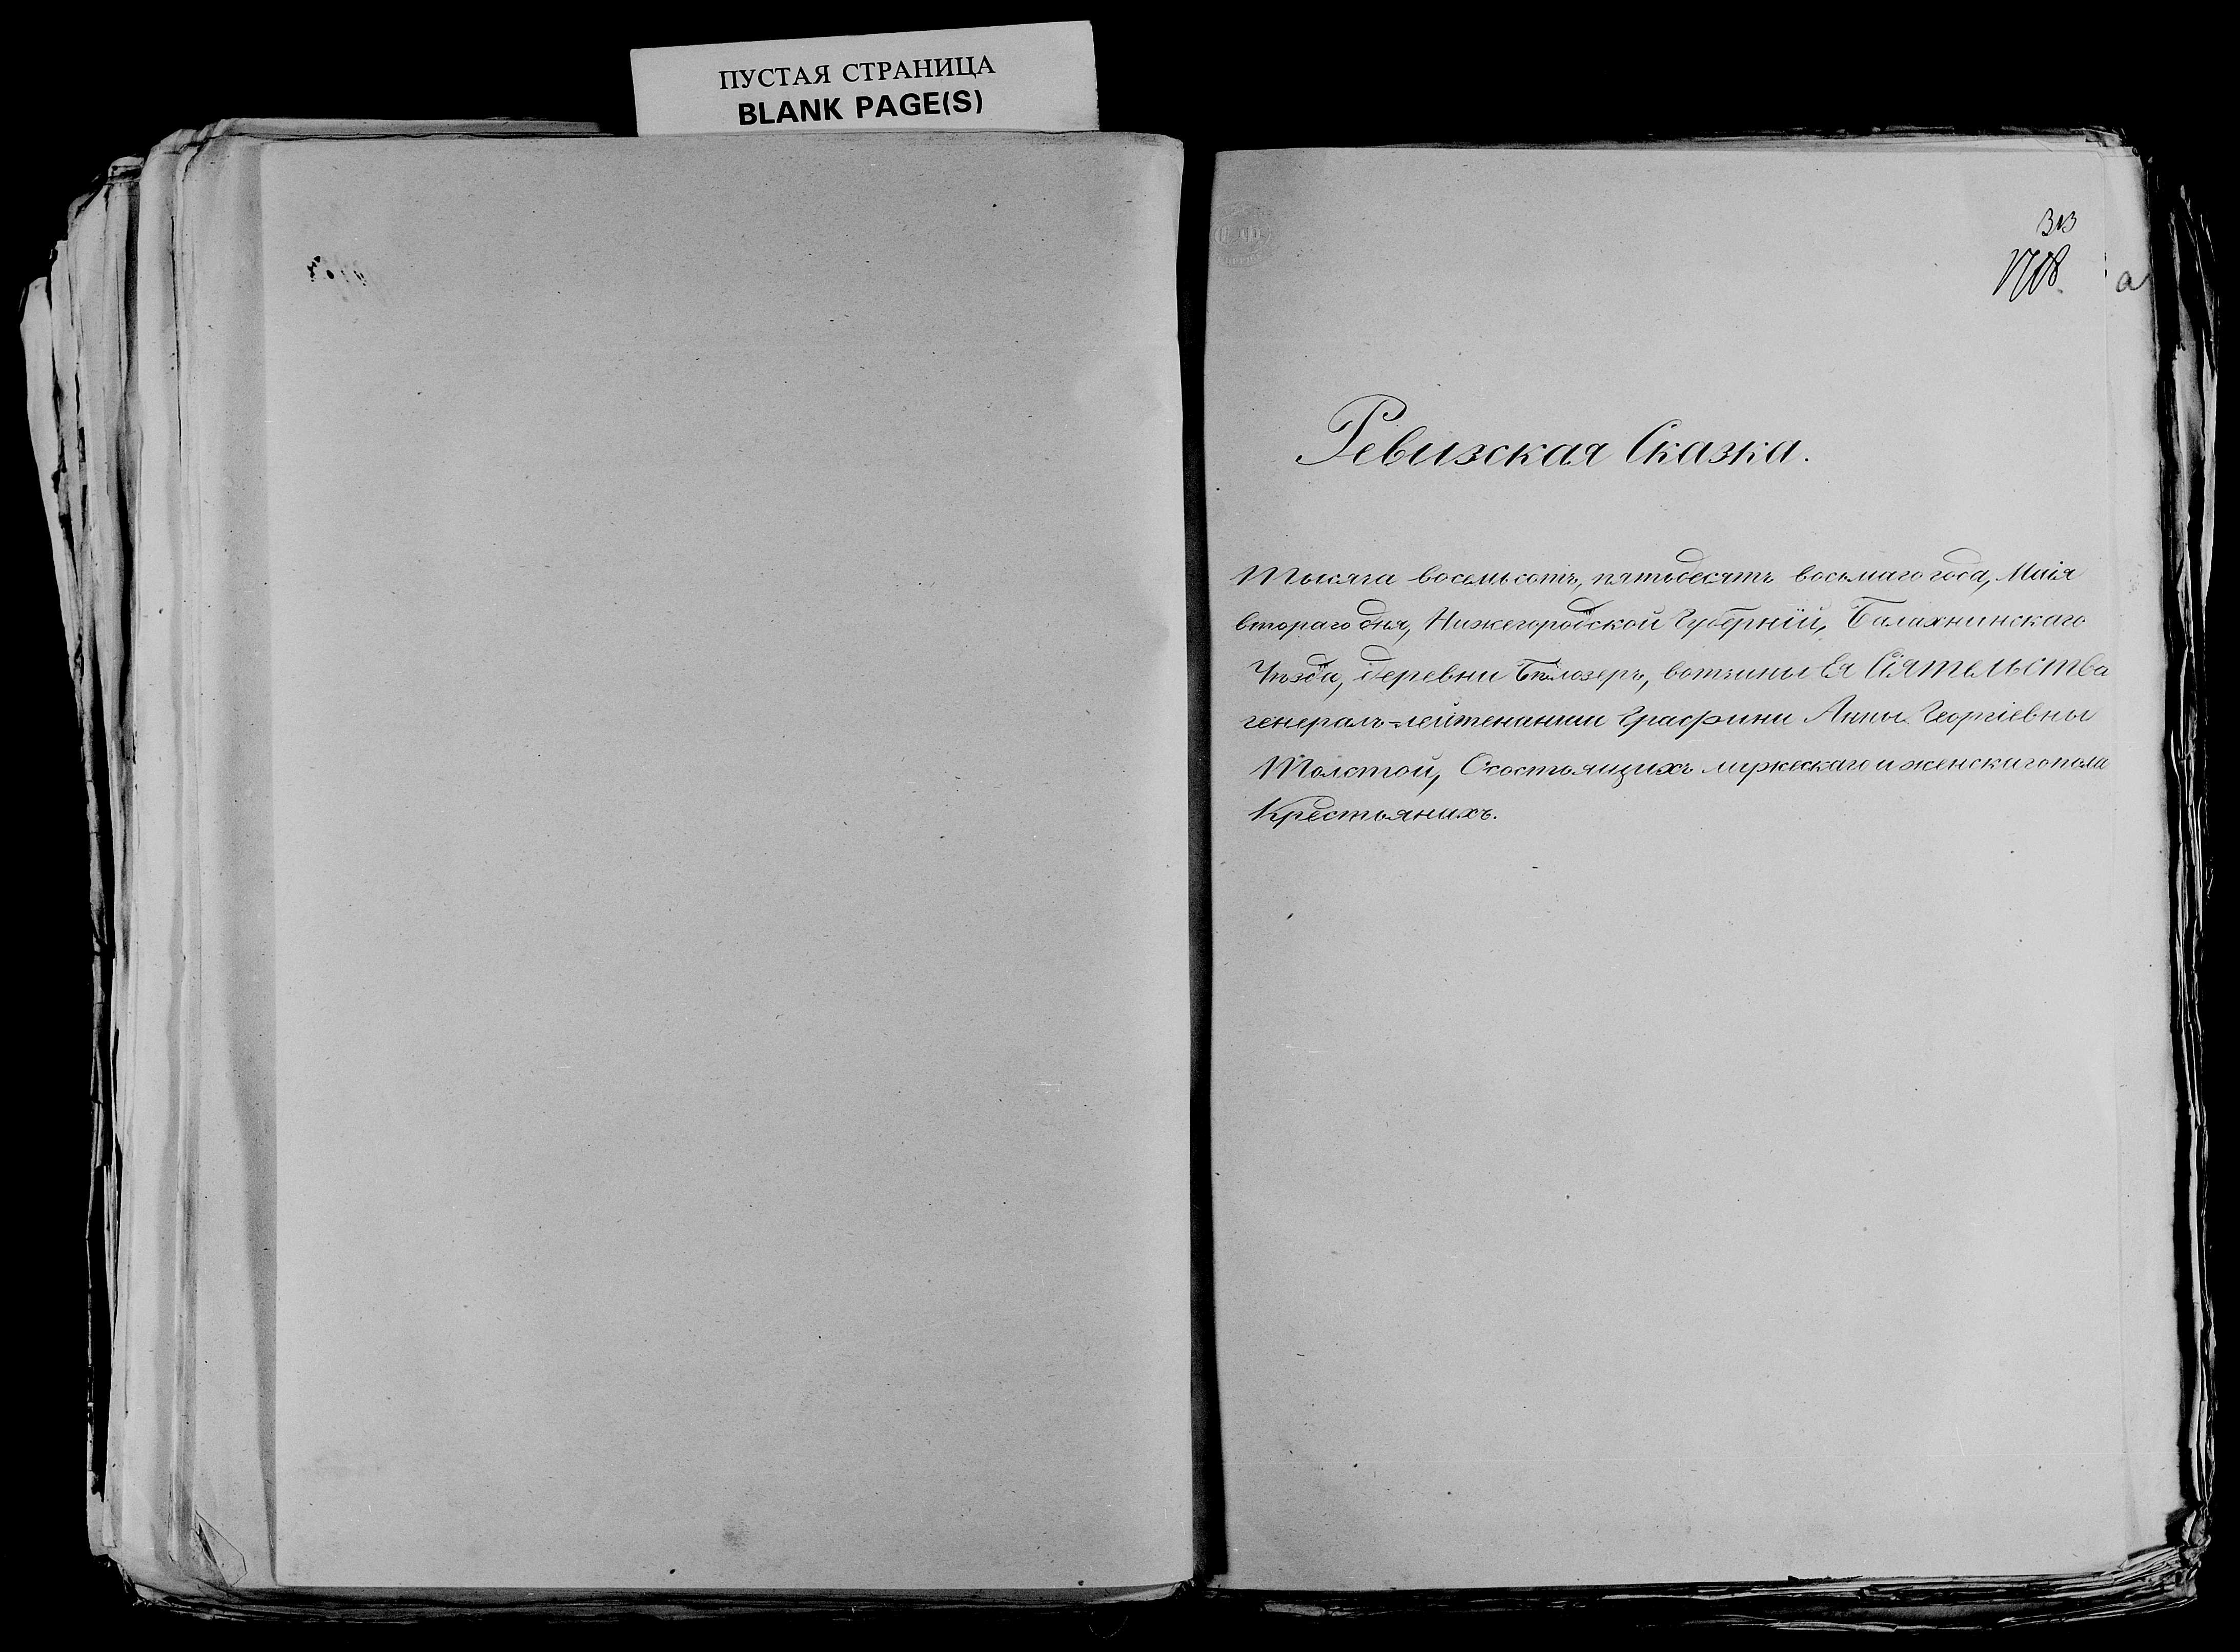 ПУСТАЯ СТРАНИЦА
BLANK PAGE(S)
313
1708
а
Ревизская Сказка.
Тысяча восемьсотъ, пятьдесятъ восьмаго года, Маія
втораго дня, Нижегородской Губерніи, Балахнинскаго
Уѣзда, деревни Бѣлозеръ, вотчины Ея Сіятельства
генералъ-лейтенанши Графини Анны Георгіевны
Толстой, Осостоящихъ мужескаго и женскаго пола
Крестьянихъ.